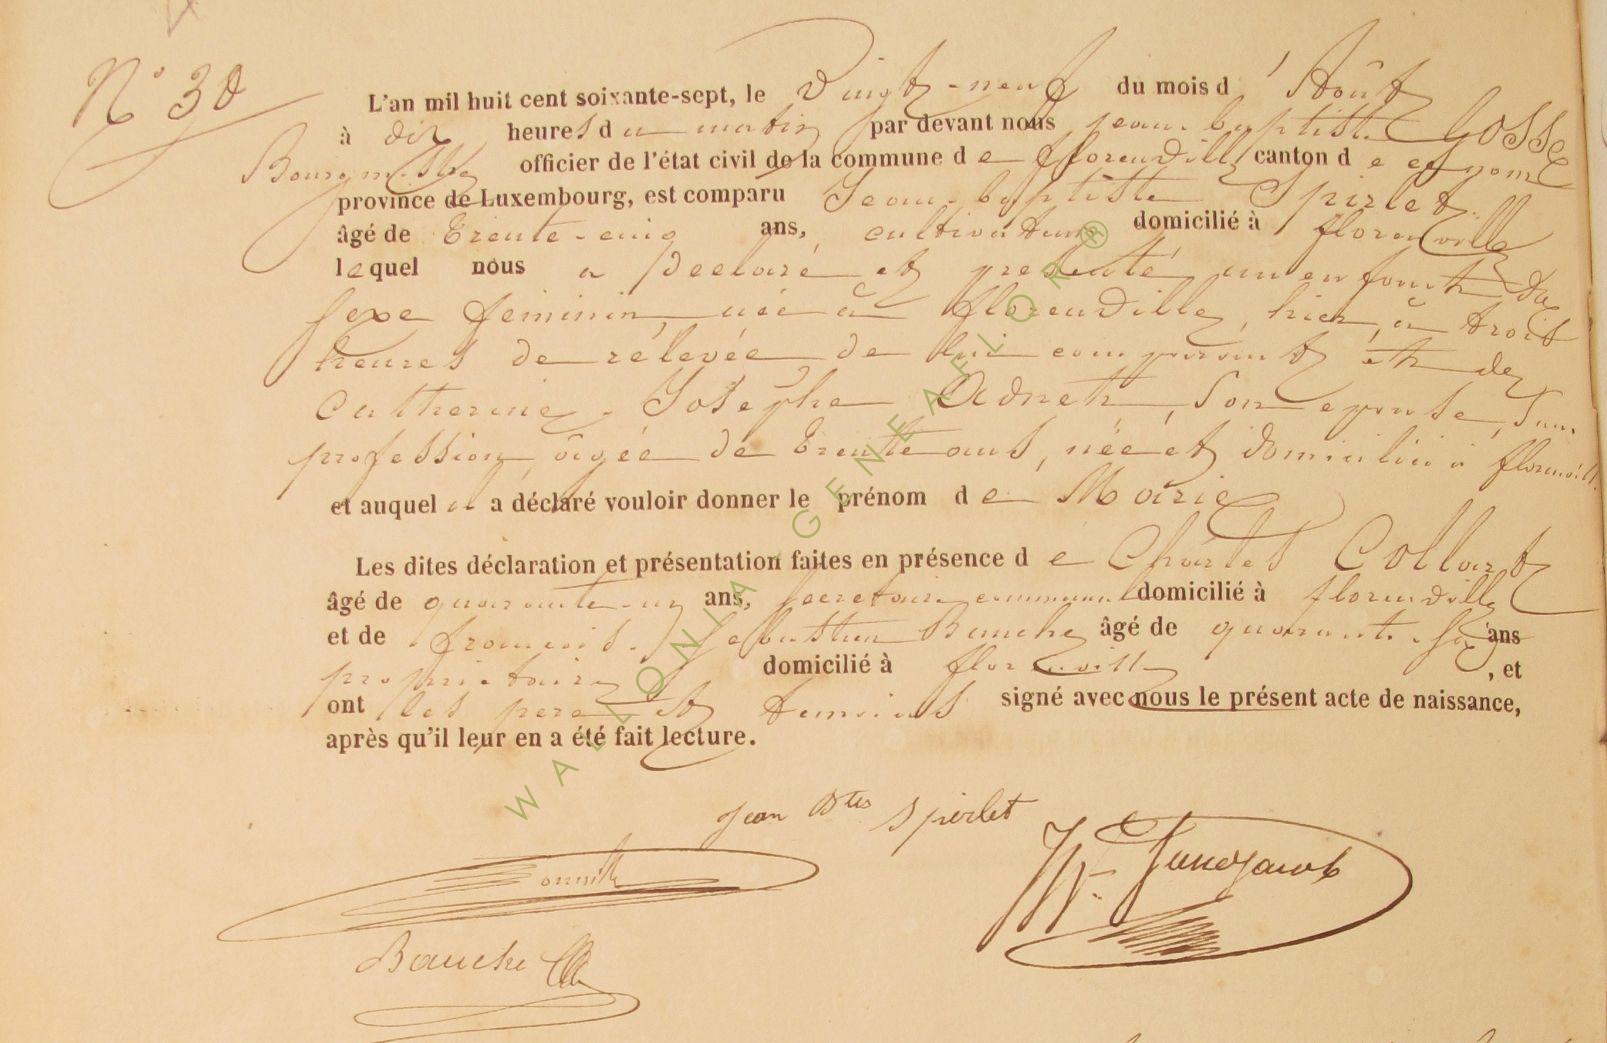 N° 30
L'an mil huit cent soixante-sept, le Vingt-neuf du mois d'Août
à dix heures du matin par devant nous jean-baptiste Gosse
Bourgmestre officier de l'état civil de la commune de florenville canton de
province de Luxembourg, est comparu Jean-baptiste Spirlet
âgé de trente-cinq ans, cultivateur domicilié à florenville
lequel nous a declaré et presenté un enfant du
sexe feminin, née à florenville, hier, à trois
heures de rélevée de lui comparant et de
Catherine-Josephe Adnet, son epouse, sans
profession, âgée de trente ans, née et domiciliée à florenville
et auquel il a déclaré vouloir donner le prénom de Marie
Les dites déclaration et présentation faites en présence de Charles Collart
âgé de quarante-un ans, secretaire communal domicilié à florenville
et de francois-Sebastien Bauche âgé de quarante-six ans
propriétaire domicilié à florenville, et
ont les pere et temoins signé avec nous le présent acte de naissance,
après qu'il leur en a été fait lecture.
jean Btes Spirlet
Bauche
WALLONIA - GENEAFLOR®